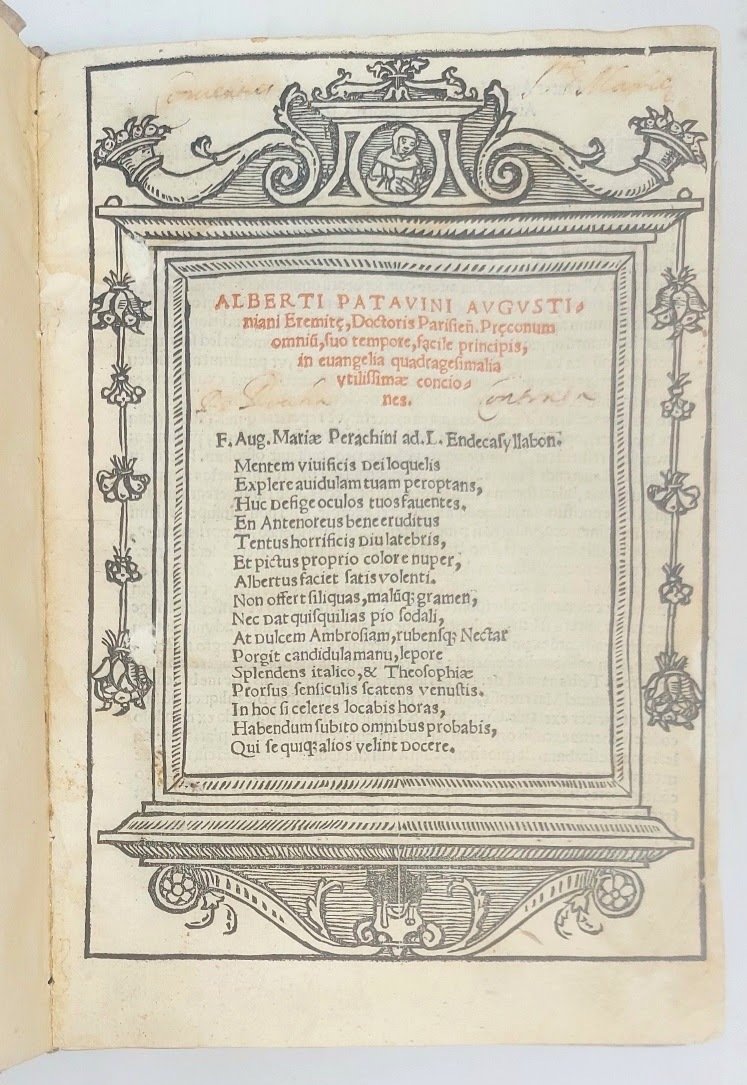 Conuentus Stę Marie
ALBERTI PATAVINI AVGVSTI-
niani Eremitę, Doctoris Parisieñ. Pręconum
omniũ, suo tempore, facile principis,
in euangelia quadragesimalia
vtilissimæ concio-
nes.
F. Aug. Mariæ Perachini ad. L. Endecasyllabon.
Mentem viuificis Dei loquelis
Explere auidulam tuam peroptans,
Huc Defige oculos tuos fauentes.
En Antenoreus bene eruditus
Tentus horrificis Diu latebris,
Et pictus proprio colore nuper,
Albertus faciet satis volenti.
Non offert siliquas, malũq; gramen,
Nec Dat quisquilias pio sodali,
At Dulcem Ambrosiam, rubensq; Nectar
Porgit candidula manu, lepore
Splendens italico, & Theosophiæ
Prorsus sensiculis scatens venustis.
In hoc si celeres locabis horas,
Habendum subito omnibus probabis,
Qui se quiq; alios velint Docere.